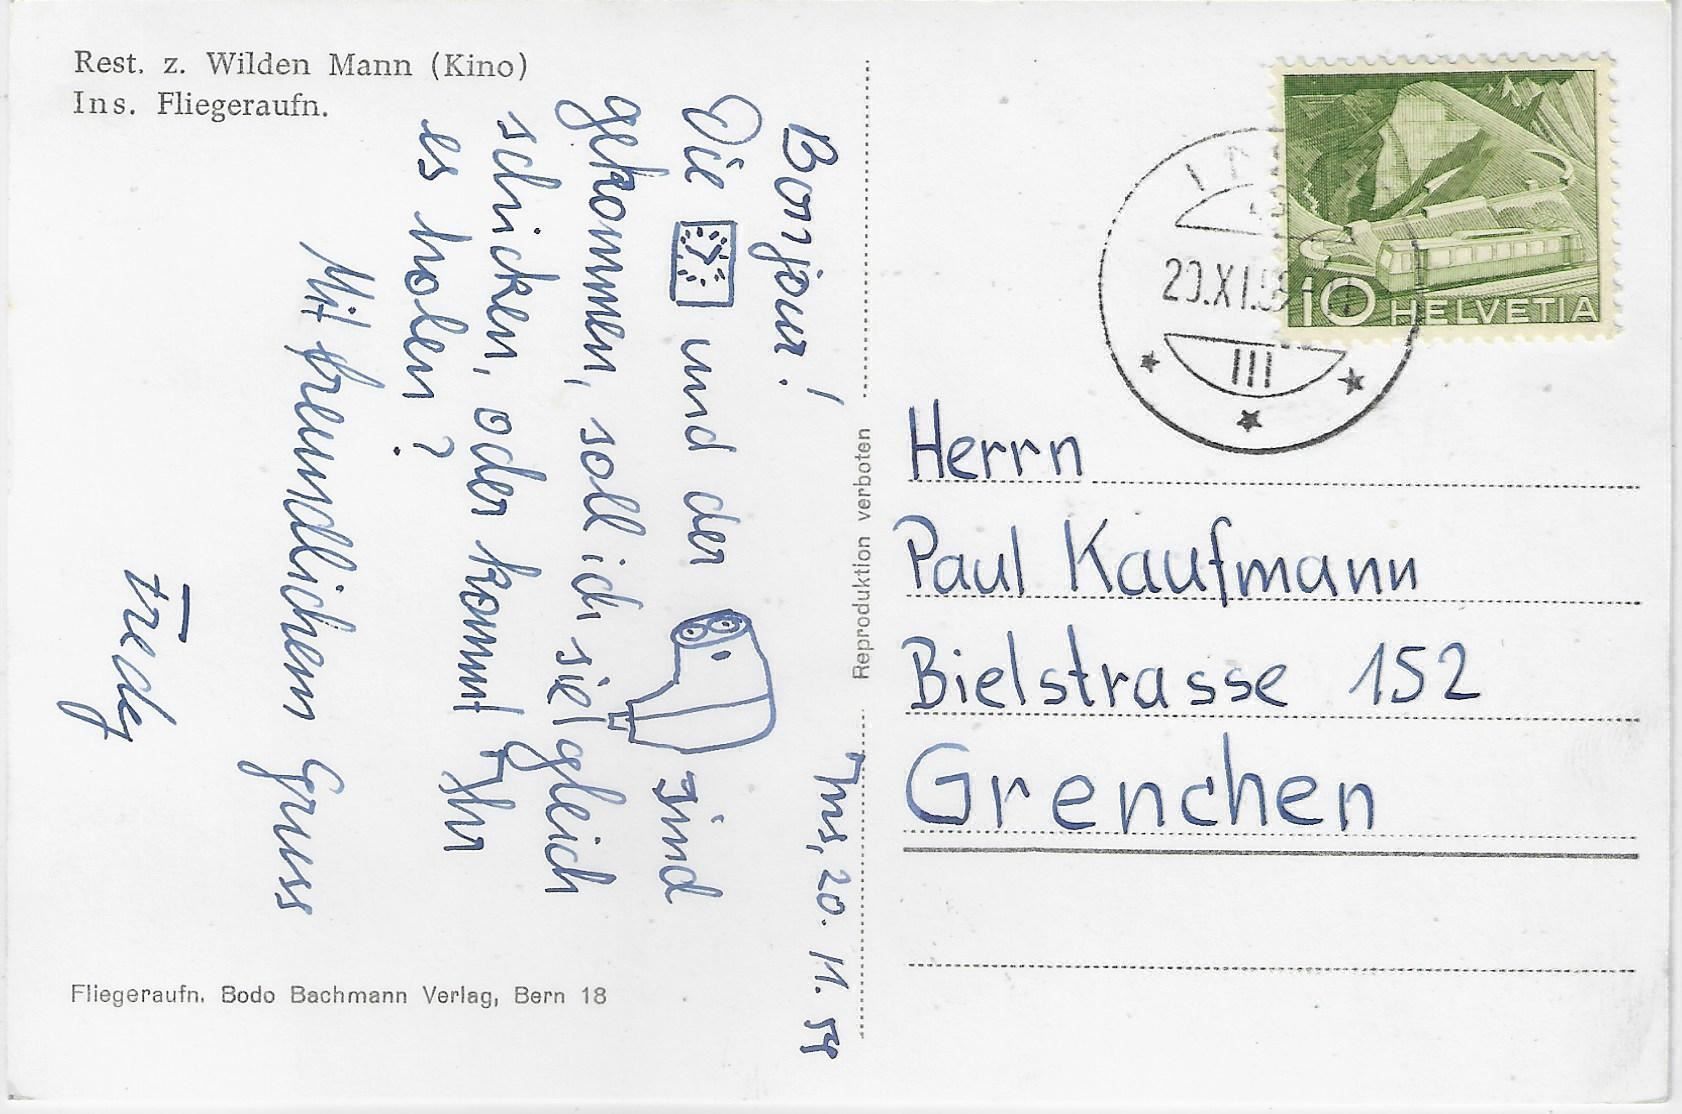 Rest. z. Wilden Mann (Kino)
Ins. Fliegeraufn.
Ins, 20. 11. 59
Bonjour!
Die und der sind
gekommen, soll ich sie gleich
schicken, oder kommt Ihr
es holen?
Mit freundlichem Gruss
Fredy
Fliegeraufn. Bodo Bachmann Verlag, Bern 18
Reproduktion verboten
10 HELVETIA
20.XI.59
III
Herrn
Paul Kaufmann
Bielstrasse 152
Grenchen